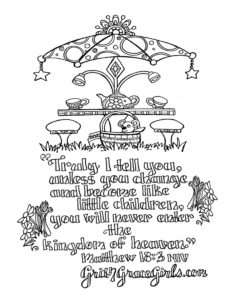 "Truly I tell you,
unless you change
and become like
little children,
you will never enter
the
kingdom of heaven."
Matthew 18:3 NIV
GritNGraceGirls.com